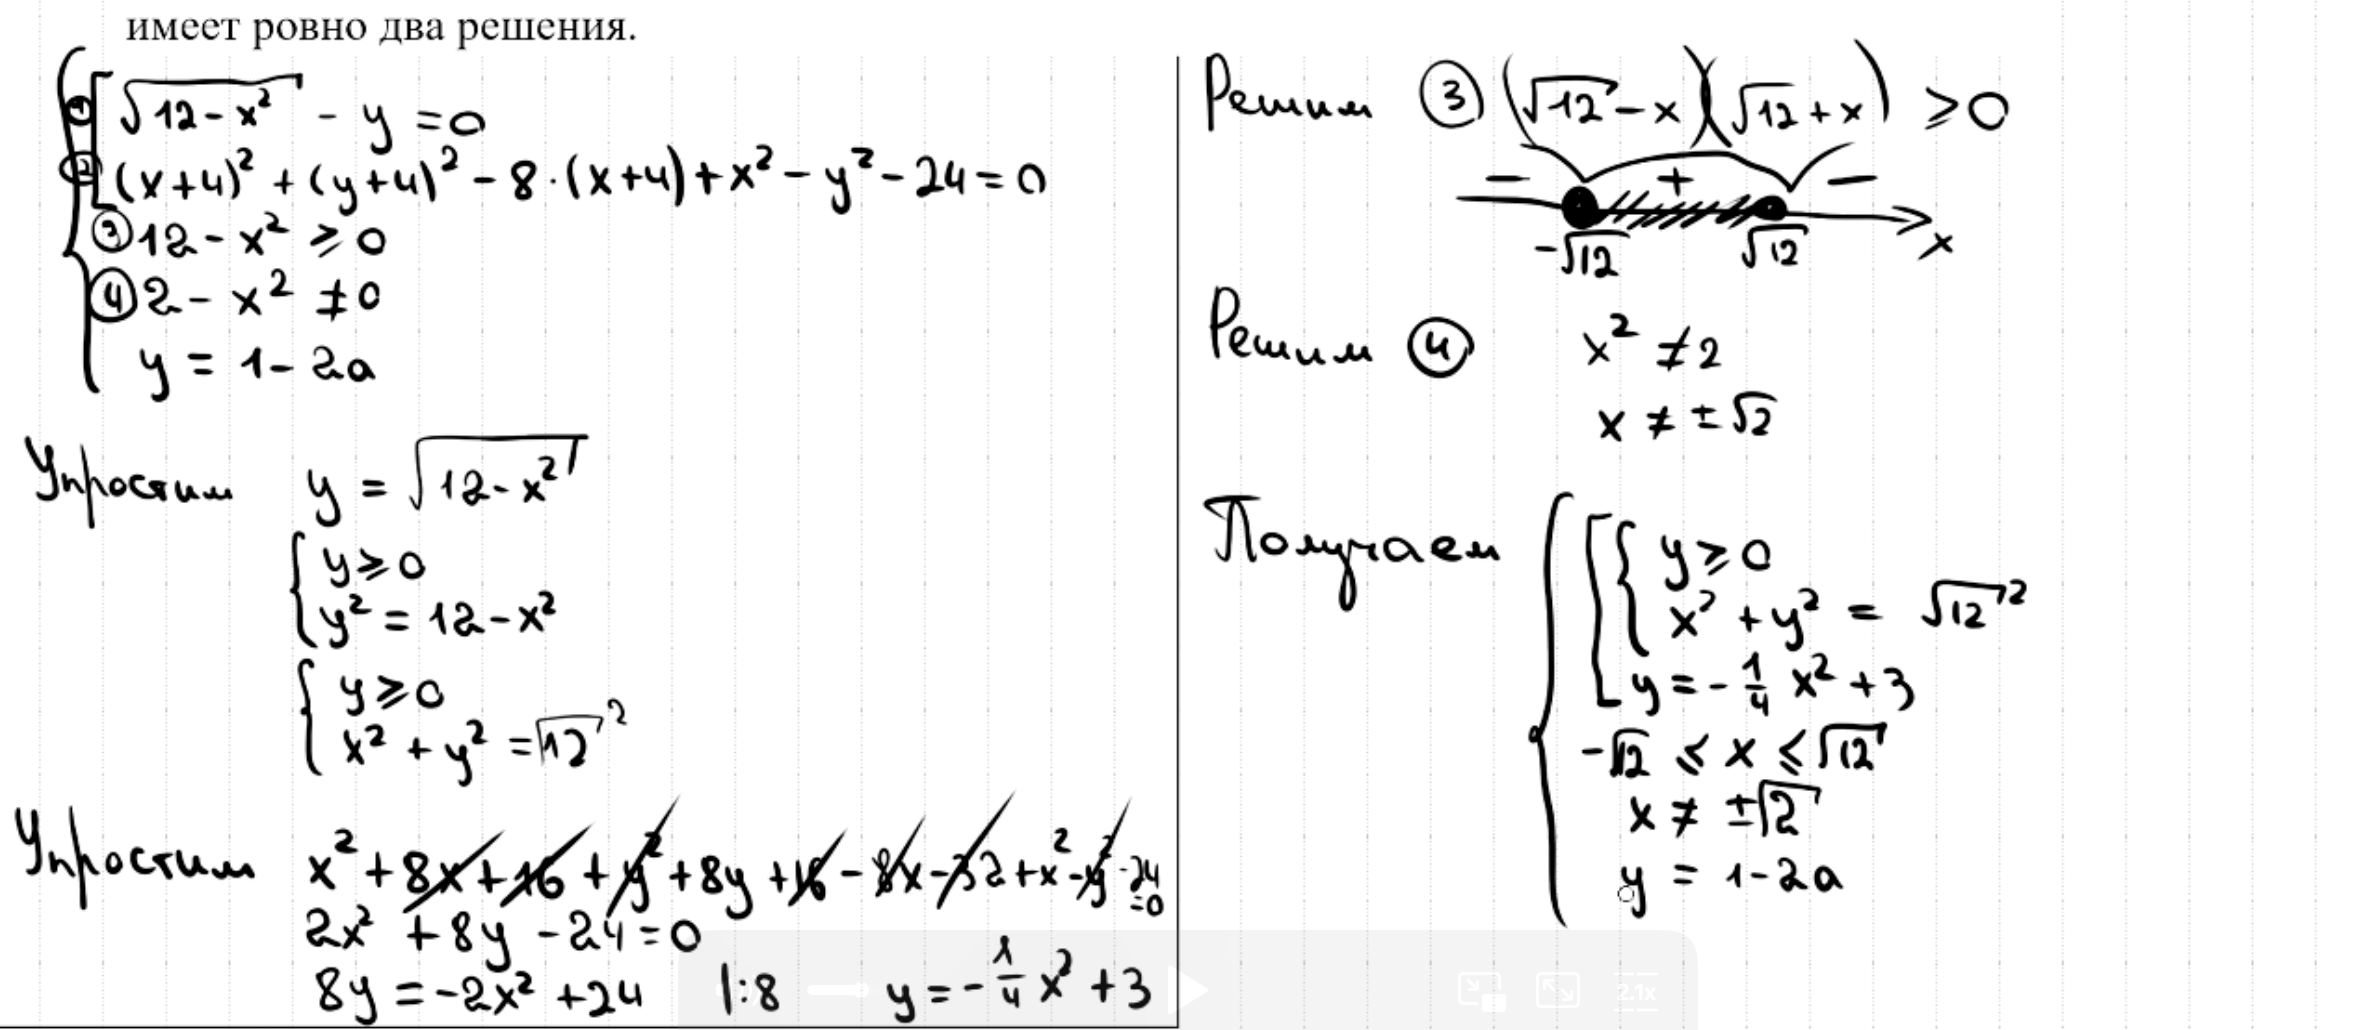 имеет ровно два решения.
① √(12-x²) - y = 0
② (x+4)² + (y+4)² - 8·(x+4) + x² - y² - 24 = 0
③ 12 - x² ≥ 0
④ 2 - x² ≠ 0
y = 1 - 2a
Упростим y = √(12-x²)
y ≥ 0
y² = 12 - x²
y ≥ 0
x² + y² = √12²
Упростим x² + 8x + 16 + y² + 8y + 16 - 8x - 32 + x² - y² - 24 = 0
2x² + 8y - 24 = 0
8y = -2x² + 24 |:8 y = -1/4 x² + 3
Решим ③ (√12 - x)(√12 + x) ≥ 0
- + -
-√12 √12 x
Решим ④ x² ≠ 2
x ≠ ±√2
Получаем y ≥ 0
x² + y² = √12²
y = -1/4 x² + 3
-√12 ≤ x ≤ √12
x ≠ ±√2
y = 1 - 2a
2.1x